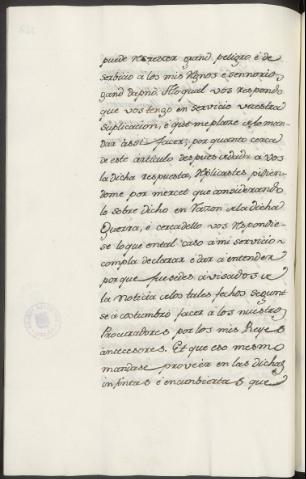 puede recrescer grand peligro é de
serbicio á los mis regnos é sennorio
gand dapno. Alo qual vos respondo
que vos tengo en servicio vuestra
suplicacion, é que me place delo man
dar assi facer; por quanto cerca
de este articulo despues dedada á vos
la dicha respuesta, replicastes, pidien-
dome por merced que considerando
lo sobre dicho en razon dela dicha
Guerra, é cerca dello vos respondie-
se lo que en tal caso á mi servicio
compla declarar é dar á entender
porque fuesedes avisados de
la noticia delos tales fechos segunt
se á costumbró facer á los nuestros
Procuradores por los mis Reyes
antecesores. Et que eso mesmo
mandase proveir en las dichas
infintas é encubiertas que